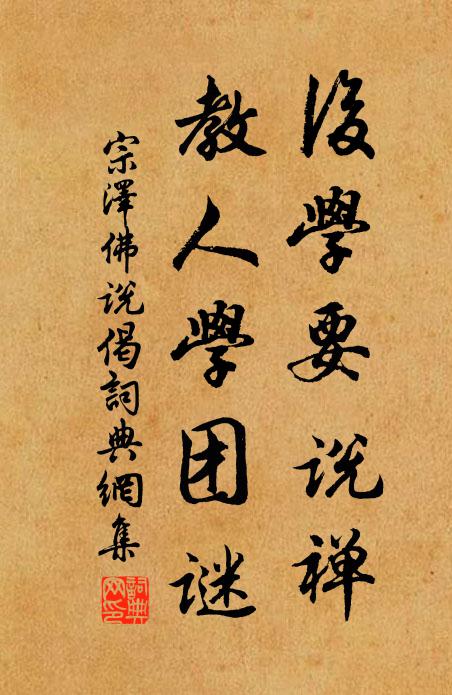 後學要说禅
教人學团谜
宗澤佛说偈詞典網集
詞典网印